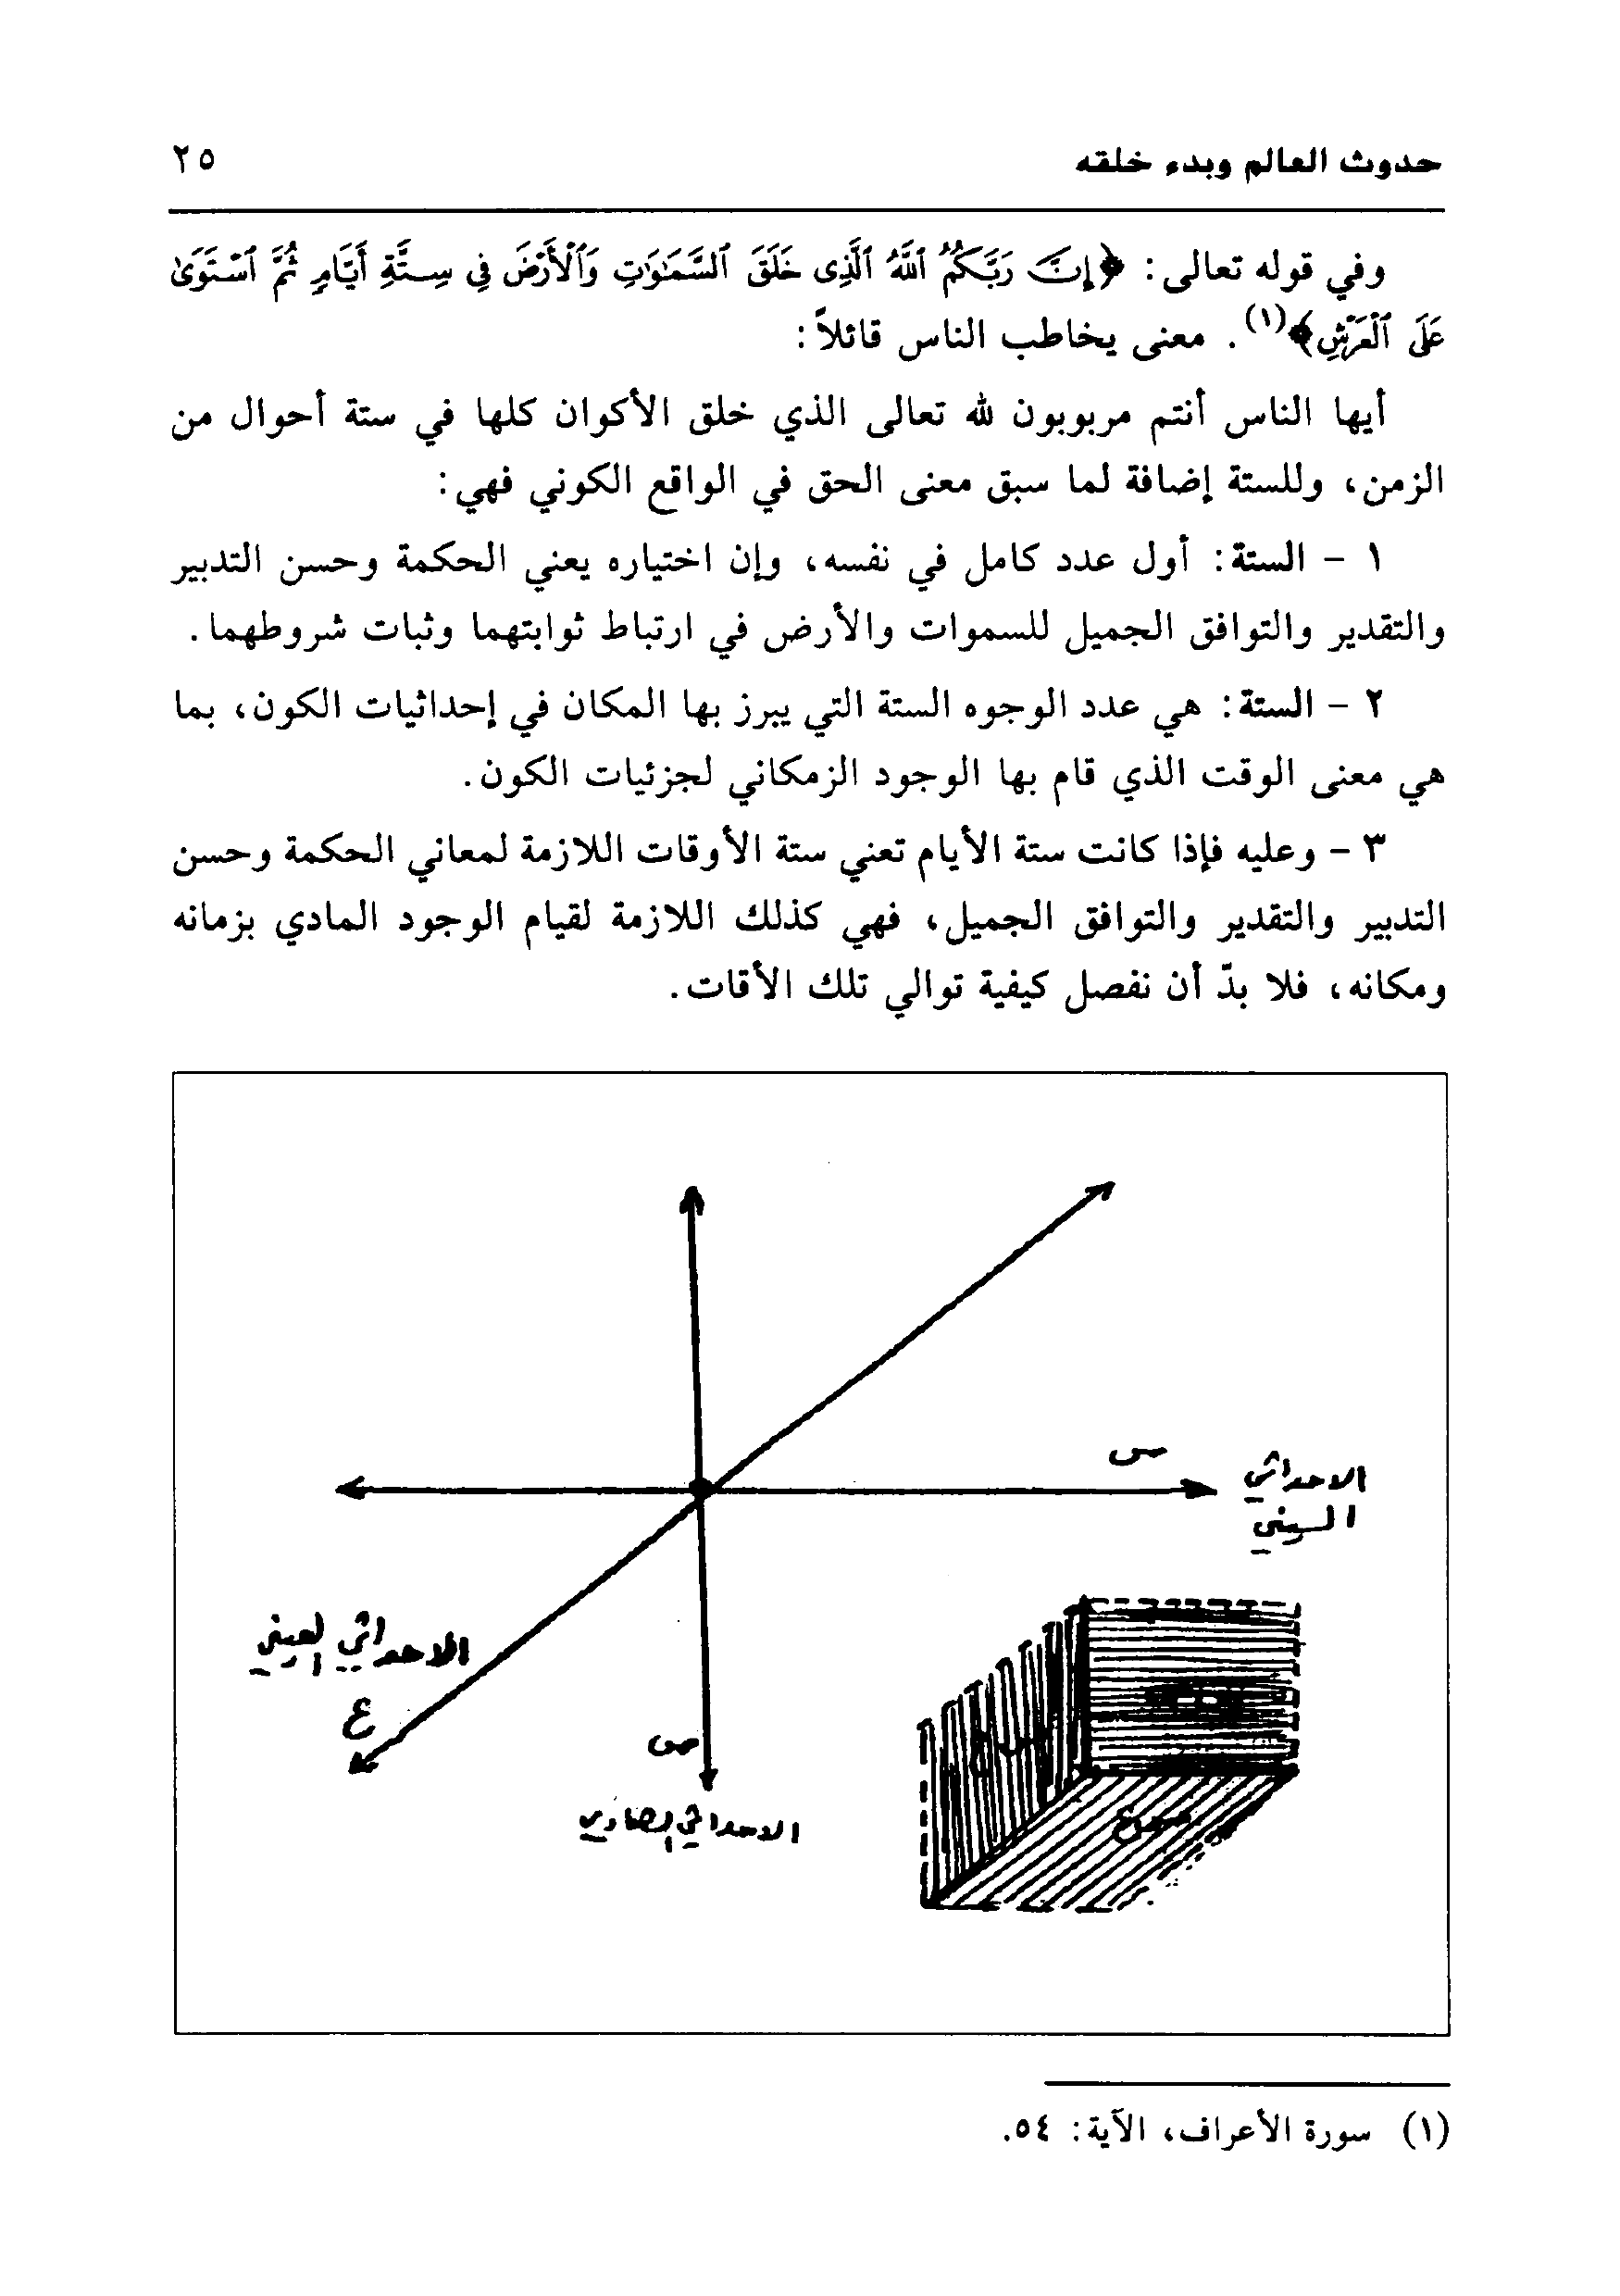 حدوث العالم وبدء خلقه ٢٥
وفي قوله تعالى: ﴿إِنَّ رَبَّكُمُ ٱللَّهُ ٱلَّذِى خَلَقَ ٱلسَّمَٰوَٰتِ وَٱلْأَرْضَ فِى سِتَّةِ أَيَّامٍ ثُمَّ ٱسْتَوَىٰ
عَلَى ٱلْعَرْشِ﴾(١). معنى يخاطب الناس قائلاً:
أيها الناس أنتم مربوبون لله تعالى الذي خلق الأكوان كلها في ستة أحوال من
الزمن، وللستة إضافة لما سبق معنى الحق في الواقع الكوني فهي:
١ - الستة: أول عدد كامل في نفسه، وإن اختياره يعني الحكمة وحسن التدبير
والتقدير والتوافق الجميل للسموات والأرض في ارتباط ثوابتهما وثبات شروطهما.
٢ - الستة: هي عدد الوجوه الستة التي يبرز بها المكان في إحداثيات الكون، بما
هي معنى الوقت الذي قام بها الوجود الزمكاني لجزئيات الكون.
٣ - وعليه فإذا كانت ستة الأيام تعني ستة الأوقات اللازمة لمعاني الحكمة وحسن
التدبير والتقدير والتوافق الجميل، فهي كذلك اللازمة لقيام الوجود المادي بزمانه
ومكانه، فلا بدّ أن نفصل كيفية توالي تلك الأقات.
س
الاحداثي
السيني
الاحداثي العيني
ع
ص
الاحداثي الصادي
(١) سورة الأعراف، الآية: ٥٤.